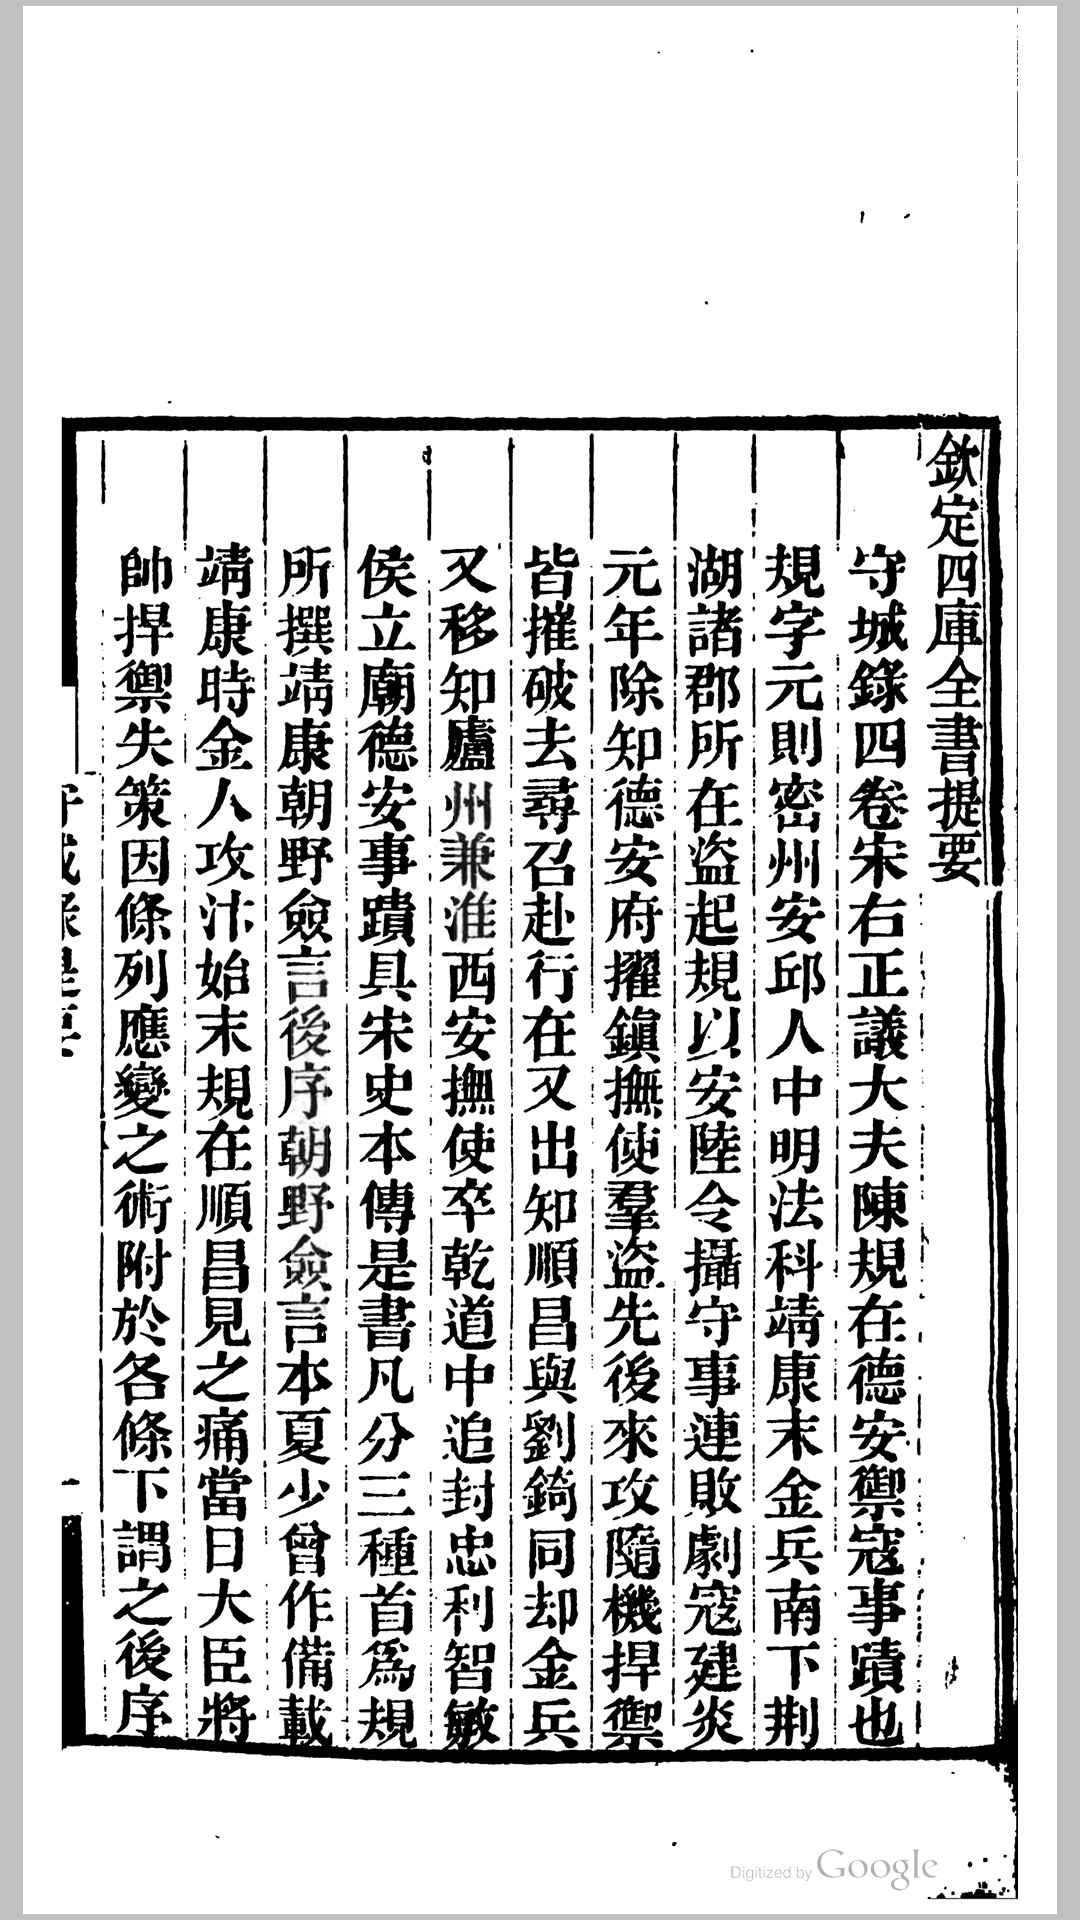 欽定四庫全書提要
守城錄四卷宋右正議大夫陳規在德安禦寇事蹟也
規字元則密州安邱人中明法科靖康末金兵南下荆
湖諸郡所在盜起規以安陸令攝守事連敗劇寇建炎
元年除知德安府擢鎮撫使羣盜先後來攻隨機捍禦
皆摧破去尋召赴行在又出知順昌與劉錡同却金兵
又移知廬州兼淮西安撫使卒乾道中追封忠利智敏
侯立廟德安事蹟具宋史本傳是書凡分三種首爲規
所撰靖康朝野僉言後序朝野僉言本夏少曾作備載
靖康時金人攻汴始末規在順昌見之痛當日大臣將
帥捍禦失策因條列應變之術附於各條下謂之後序
一
Digitized by Google